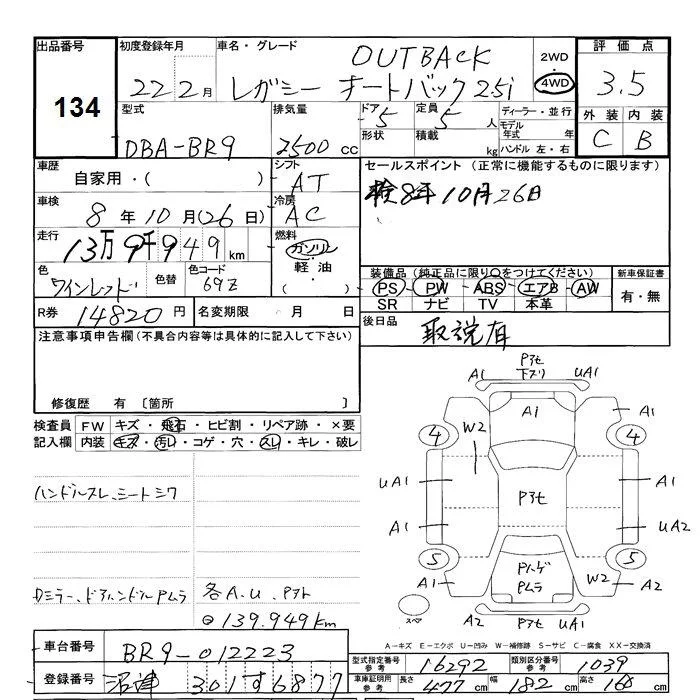 出品番号 134
初度登録年月 22 2月
車名・グレード OUTBACK
レガシー オートバック 25i
2WD・4WD
評価点 3.5
外装 C 内装 B
型式 DBA-BR9
排気量 2500 cc
ドア 5 形状
定員 5 人 積載 kg
ディーラー・並行
モデル年式 年
ハンドル 左・右
車歴 自家用・( )
シフト AT
車検 8年10月(26日)
冷房 AC
走行 13万9千949 km
燃料 ガソリン・軽油・( )
色 ワインレッド 色替
色コード 69Z
R券 14820円
名変期限 ・月 日
セールスポイント (正常に機能するものに限ります)
検8年10月26日
装備品 (純正品に限り○をつけてください)
PS PW ABS エアB AW
SR ナビ TV 本革
新車保証書 有・無
後日品 取説有
注意事項申告欄(不具合内容等は具体的に記入して下さい)
修復歴 有 〔箇所 〕
検査員記入欄
FW キズ・飛石・ヒビ割・リペア跡・×要
内装 キズ・汚レ・コゲ・穴・スレ・キレ・破レ
ハンドルスレ、シートシワ
Dミラー、ドアハンドルPムラ
各A.U、Pアト
139.949km
Pアセ
A1 下スリ UA1
A1
A1 A1
4 W2 4
UA1 UA1
Pアセ
A1 UA2
5 5
PハゲPムラ
W2
A1 A2
A2 Pアセ UA1
スペア
A-キズ E-エクボ U-凹み W-補修跡 S-サビ C-腐食 XX-交換済
車台番号 BR9-012223
登録番号 沼津 301す6877
型式指定番号 参考 16292
類別区分番号 参考 1039
車庫証明用 参考 長さ 477cm 幅 182cm 高さ 168cm